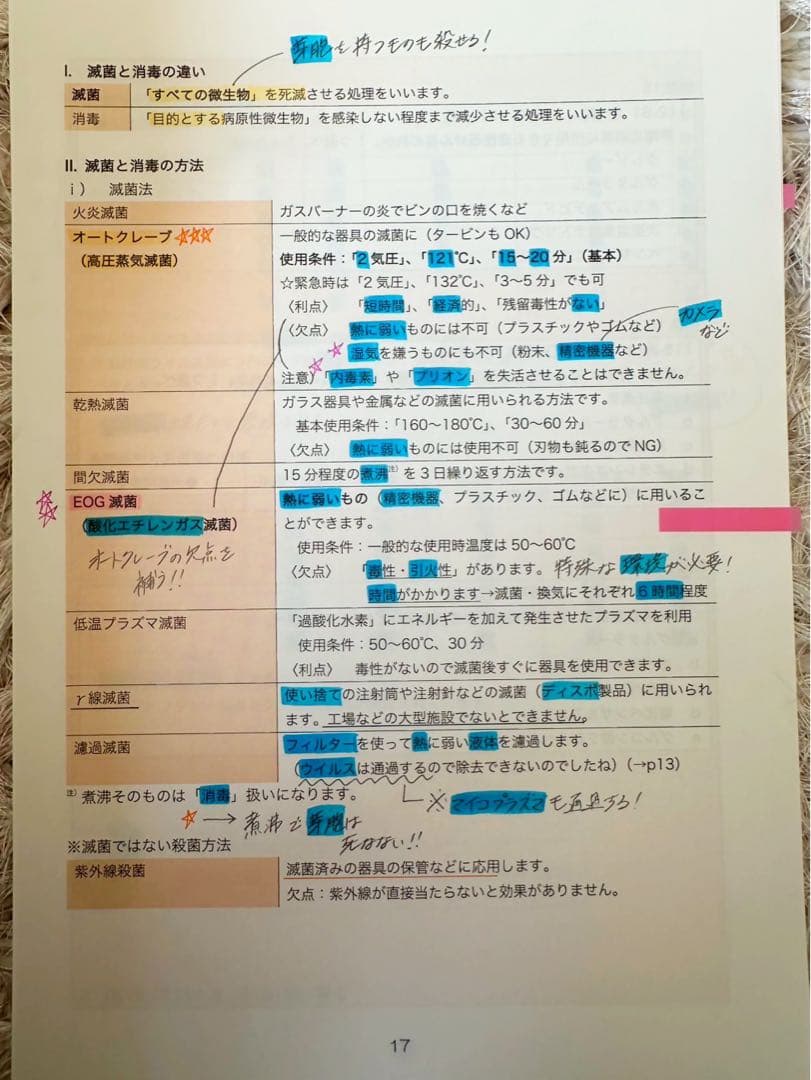 芽胞を持つものも殺せる!
Ⅰ. 滅菌と消毒の違い
滅菌 「すべての微生物」を死滅させる処理をいいます。
消毒 「目的とする病原性微生物」を感染しない程度まで減少させる処理をいいます。
Ⅱ. 滅菌と消毒の方法
ⅰ) 滅菌法
火炎滅菌 ガスバーナーの炎でビンの口を焼くなど
オートクレーブ ☆☆☆ 一般的な器具の滅菌に(タービンもOK)
(高圧蒸気滅菌) 使用条件:「2気圧」、「121℃」、「15～20分」(基本)
☆緊急時は「2気圧」、「132℃」、「3～5分」でも可
〈利点〉 「短時間」、「経済的」、「残留毒性がない」
〈欠点〉 熱に弱いものには不可(プラスチックやゴムなど) カメラ
など
☆☆ 湿気を嫌うものにも不可(粉末、精密機器など)
注意)「内毒素」や「プリオン」を失活させることはできません。
乾熱滅菌 ガラス器具や金属などの滅菌に用いられる方法です。
基本使用条件:「160～180℃」、「30～60分」
〈欠点〉 熱に弱いものには使用不可(刃物も鈍るのでNG)
間欠滅菌 15分程度の煮沸注)を3日繰り返す方法です。
☆☆ EOG滅菌 熱に弱いもの(精密機器、プラスチック、ゴムなどに)に用いるこ
(酸化エチレンガス滅菌) とができます。
オートクレーブの欠点を
補う!!
使用条件:一般的な使用時温度は50～60℃
〈欠点〉 「毒性・引火性」があります。特殊な環境が必要!
時間がかかります→滅菌・換気にそれぞれ6時間程度
低温プラズマ滅菌 「過酸化水素」にエネルギーを加えて発生させたプラズマを利用
使用条件:50～60℃、30分
〈利点〉 毒性がないので滅菌後すぐに器具を使用できます。
γ線滅菌 使い捨ての注射筒や注射針などの滅菌(ディスポ製品)に用いられ
ます。工場などの大型施設でないとできません。
濾過滅菌 フィルターを使って熱に弱い液体を濾過します。
(ウイルスは通過するので除去できないのでしたね)(→p13)
注) 煮沸そのものは「消毒」扱いになります。
※マイコプラズマも通過する!
☆→煮沸で芽胞は
死なない!!
※滅菌ではない殺菌方法
紫外線殺菌 滅菌済みの器具の保管などに応用します。
欠点:紫外線が直接当たらないと効果がありません。
17